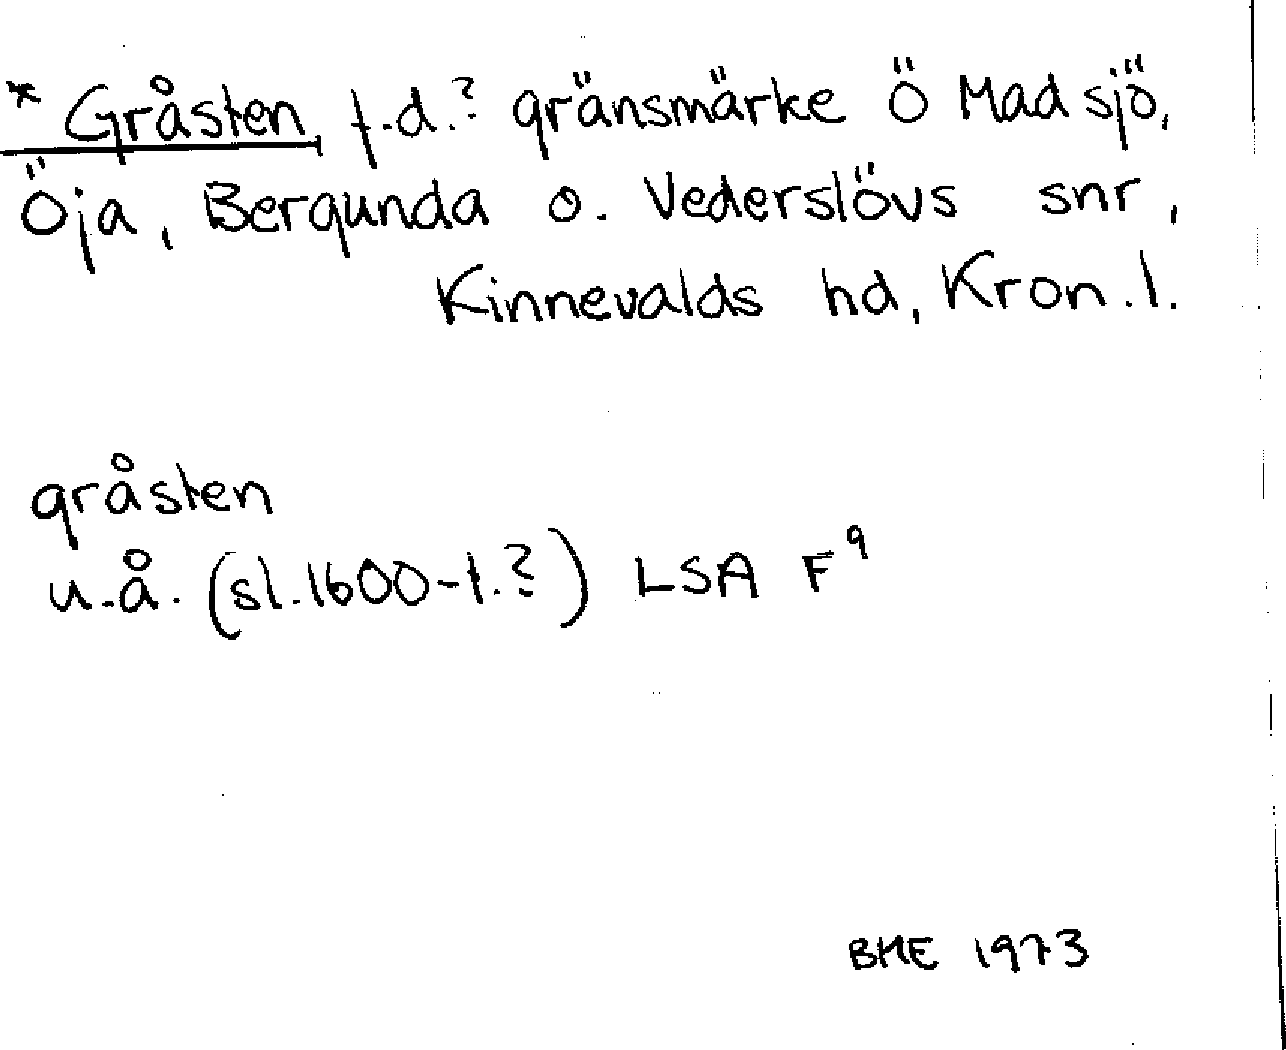 * Gråsten, f.d.? gränsmärke Ö Madsjö,
Öja, Bergunda o. Vederslövs snr,
Kinnevalds hd, Kron.l.
gråsten
u.å. (sl.1600-t.?) LSA F⁹
BME 1973